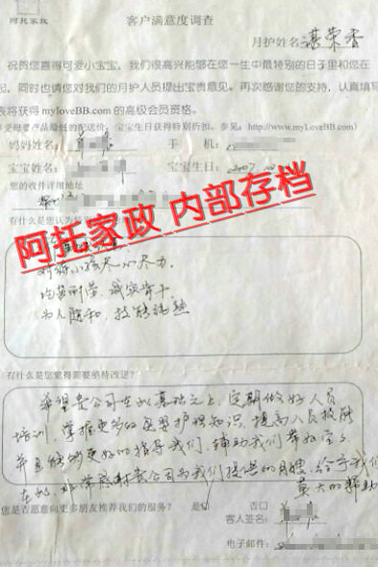 阿托家政
客户满意度调查
月护姓名 谌荣香
祝贺您喜得可爱小宝宝。我们很高兴能够在您一生中最特别的日子里和您在
起。同时也请您对我们的月护人员提出宝贵意见。再次感谢您的支持,认真填写
表将获得 myloveBB.com 的高级会员资格。
受母婴产品最低的配送价,宝宝生日获得特别折扣。参见:http://www.myloveBB.com
妈妈姓名: 手 机:
宝宝姓名: 宝宝生日:2007
您的收件详细地址
阿托家政 内部存档
有什么是您认为
对待小孩尽心尽力.
均苦耐劳、诚实肯干
为人随和,技能娴熟
有什么是您觉得需要亟待改进?
希望贵公司在此基础之上,定期做好人员
培训,掌握更多的母婴护理知识,提高人员技能
并且能够更好的指导我们,辅助我们带好宝宝
在此,非常感谢贵公司为我们提供的月嫂,给予我们
莫大的帮助
您是否愿意向更多朋友推荐我们的服务? 是 否口
客人签名:
电子邮件: